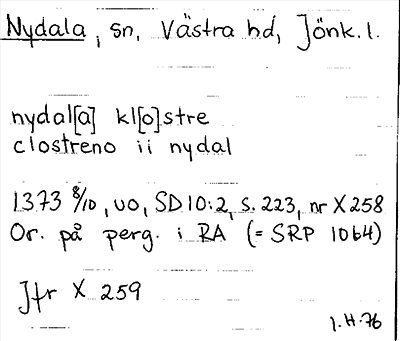 Nydala, sn, Västra hd, Jönk. l.
nydal[a] kl[o]stre
clostreno ii nydal
1373 8/10, uo, SD 10:2, s. 223, nr X 258
Or. på perg. i RA (= SRP 1064)
Jfr X 259
I.H.76